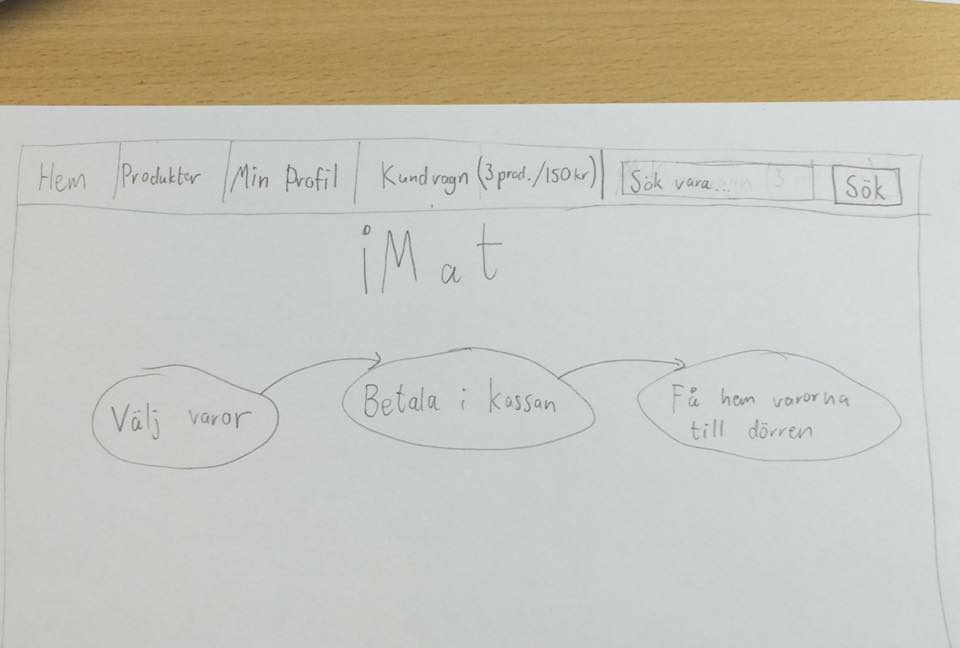 Hem Produkter Min Profil Kundvagn (3 prod./150 kr) Sök vara... Sök
iMat
Välj varor
Betala i kassan
Få hem varorna
till dörren